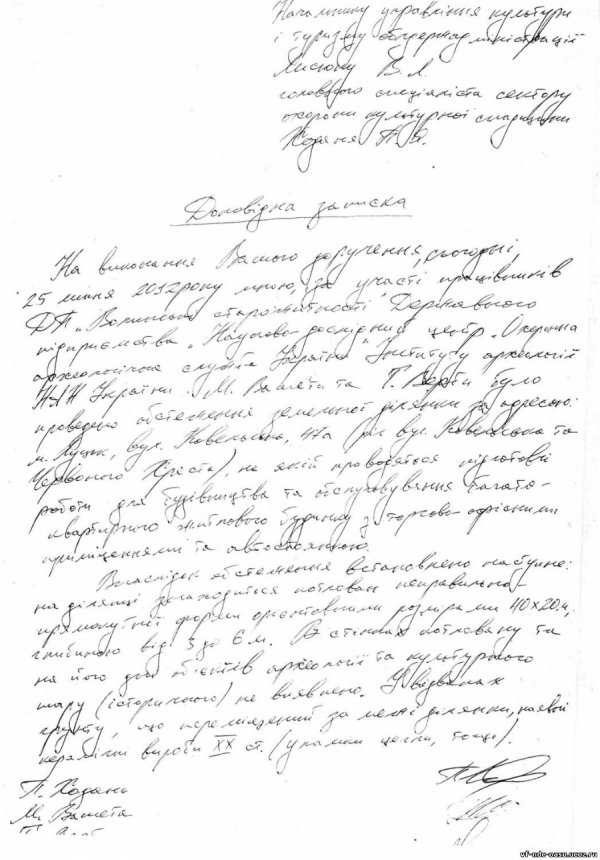 Начальнику управління культури
і туризму облдержадміністрації
Мисюку В.Л.
головного спеціаліста сектору
охорони культурної спадщини
Ходаня П.Я.
Доповідна записка
На виконання Вашого доручення, сьогодні,
25 липня 2012 року мною, за участі працівників
ДП „Волинські старожитності" Державного
підприємства „Науково-дослідний центр „Охоронна
археологічна служба України" Інституту археології
НАН України М. Вашети та Т. Верби було
проведено обстеження земельної ділянки за адресою:
м. Луцьк, вул. Ковельська, 47а (ріг вул. Ковельська та
Червоного Хреста), на якій проводяться підготовчі
роботи для будівництва та обслуговування багато-
квартирного житлового будинку з торгово-офісними
приміщеннями та автостоянкою.
Внаслідок обстеження встановлено наступне:
на ділянці знаходиться котлован неправильно-
прямокутної форми орієнтовними розмірами 40×20м,
глибиною від 3 до 6 м. В стінках котловану та
на його дні об'єктів археології та культурного
шару (історичного) не виявлено. У відвалах
грунту, що переміщений за межі ділянки, наявні
керамічні вироби XX ст. (уламки цегли, тощо).
П. Ходань
М. Вашета
wf-ndc-nasu.ucoz.ru